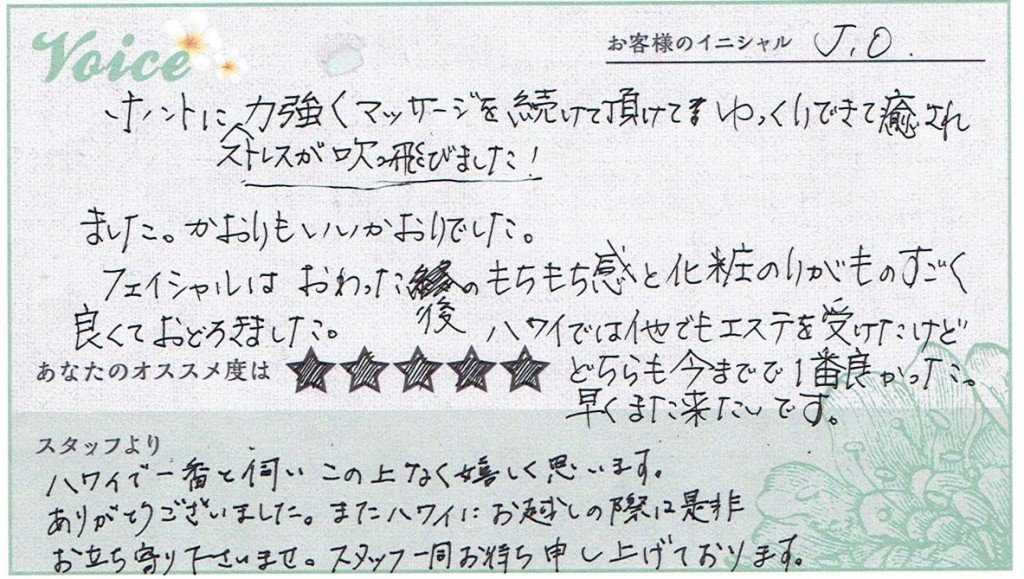 Voice
お客様のイニシャル J.O.
ホントに力強くマッサージを続けて頂けてゆっくりできて癒され
ストレスが吹っ飛びました!
ました。かおりもいいかおりでした。
フェイシャルはおわった後のもちもち感と化粧のりがものすごく
良くておどろきました。
ハワイでは他でもエステを受けたけど
あなたのオススメ度は ★★★★★
どちらも今までで1番良かった。
早くまた来たいです。
スタッフより
ハワイで一番と伺いこの上なく嬉しく思います。
ありがとうございました。またハワイにお越しの際は是非
お立ち寄り下さいませ。スタッフ一同お待ち申し上げております。